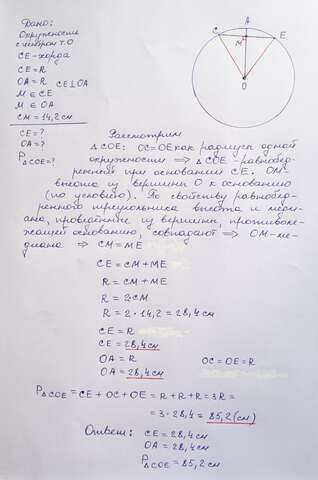 Дано:
Окружность
с центром т.О
CE - хорда
CE = R
OA = R CE⊥OA
M ∈ CE
M ∈ OA
CM = 14,2 см
CE = ?
OA = ?
P△COE = ?
A
C
M
E
O
Рассмотрим
△COE: OC = OE как радиусы одной
окружности ⇒ △COE - равнобед-
ренный при основании CE. OM -
высота из вершины O к основанию
(по условию). По свойству равнобед-
ренного треугольника высота и меди-
ана, проведённые из вершины, противоле-
жащей основанию, совпадают ⇒ OM - ме-
диана ⇒ CM = ME
CE = CM + ME
R = CM + ME
R = 2·CM
R = 2 · 14,2 = 28,4 см
CE = R
CE = 28,4 см
OA = R OC = OE = R
OA = 28,4 см
P△COE = CE + OC + OE = R + R + R = 3R =
= 3 · 28,4 = 85,2 (см)
Ответ: CE = 28,4 см
OA = 28,4 см
P△COE = 85,2 см